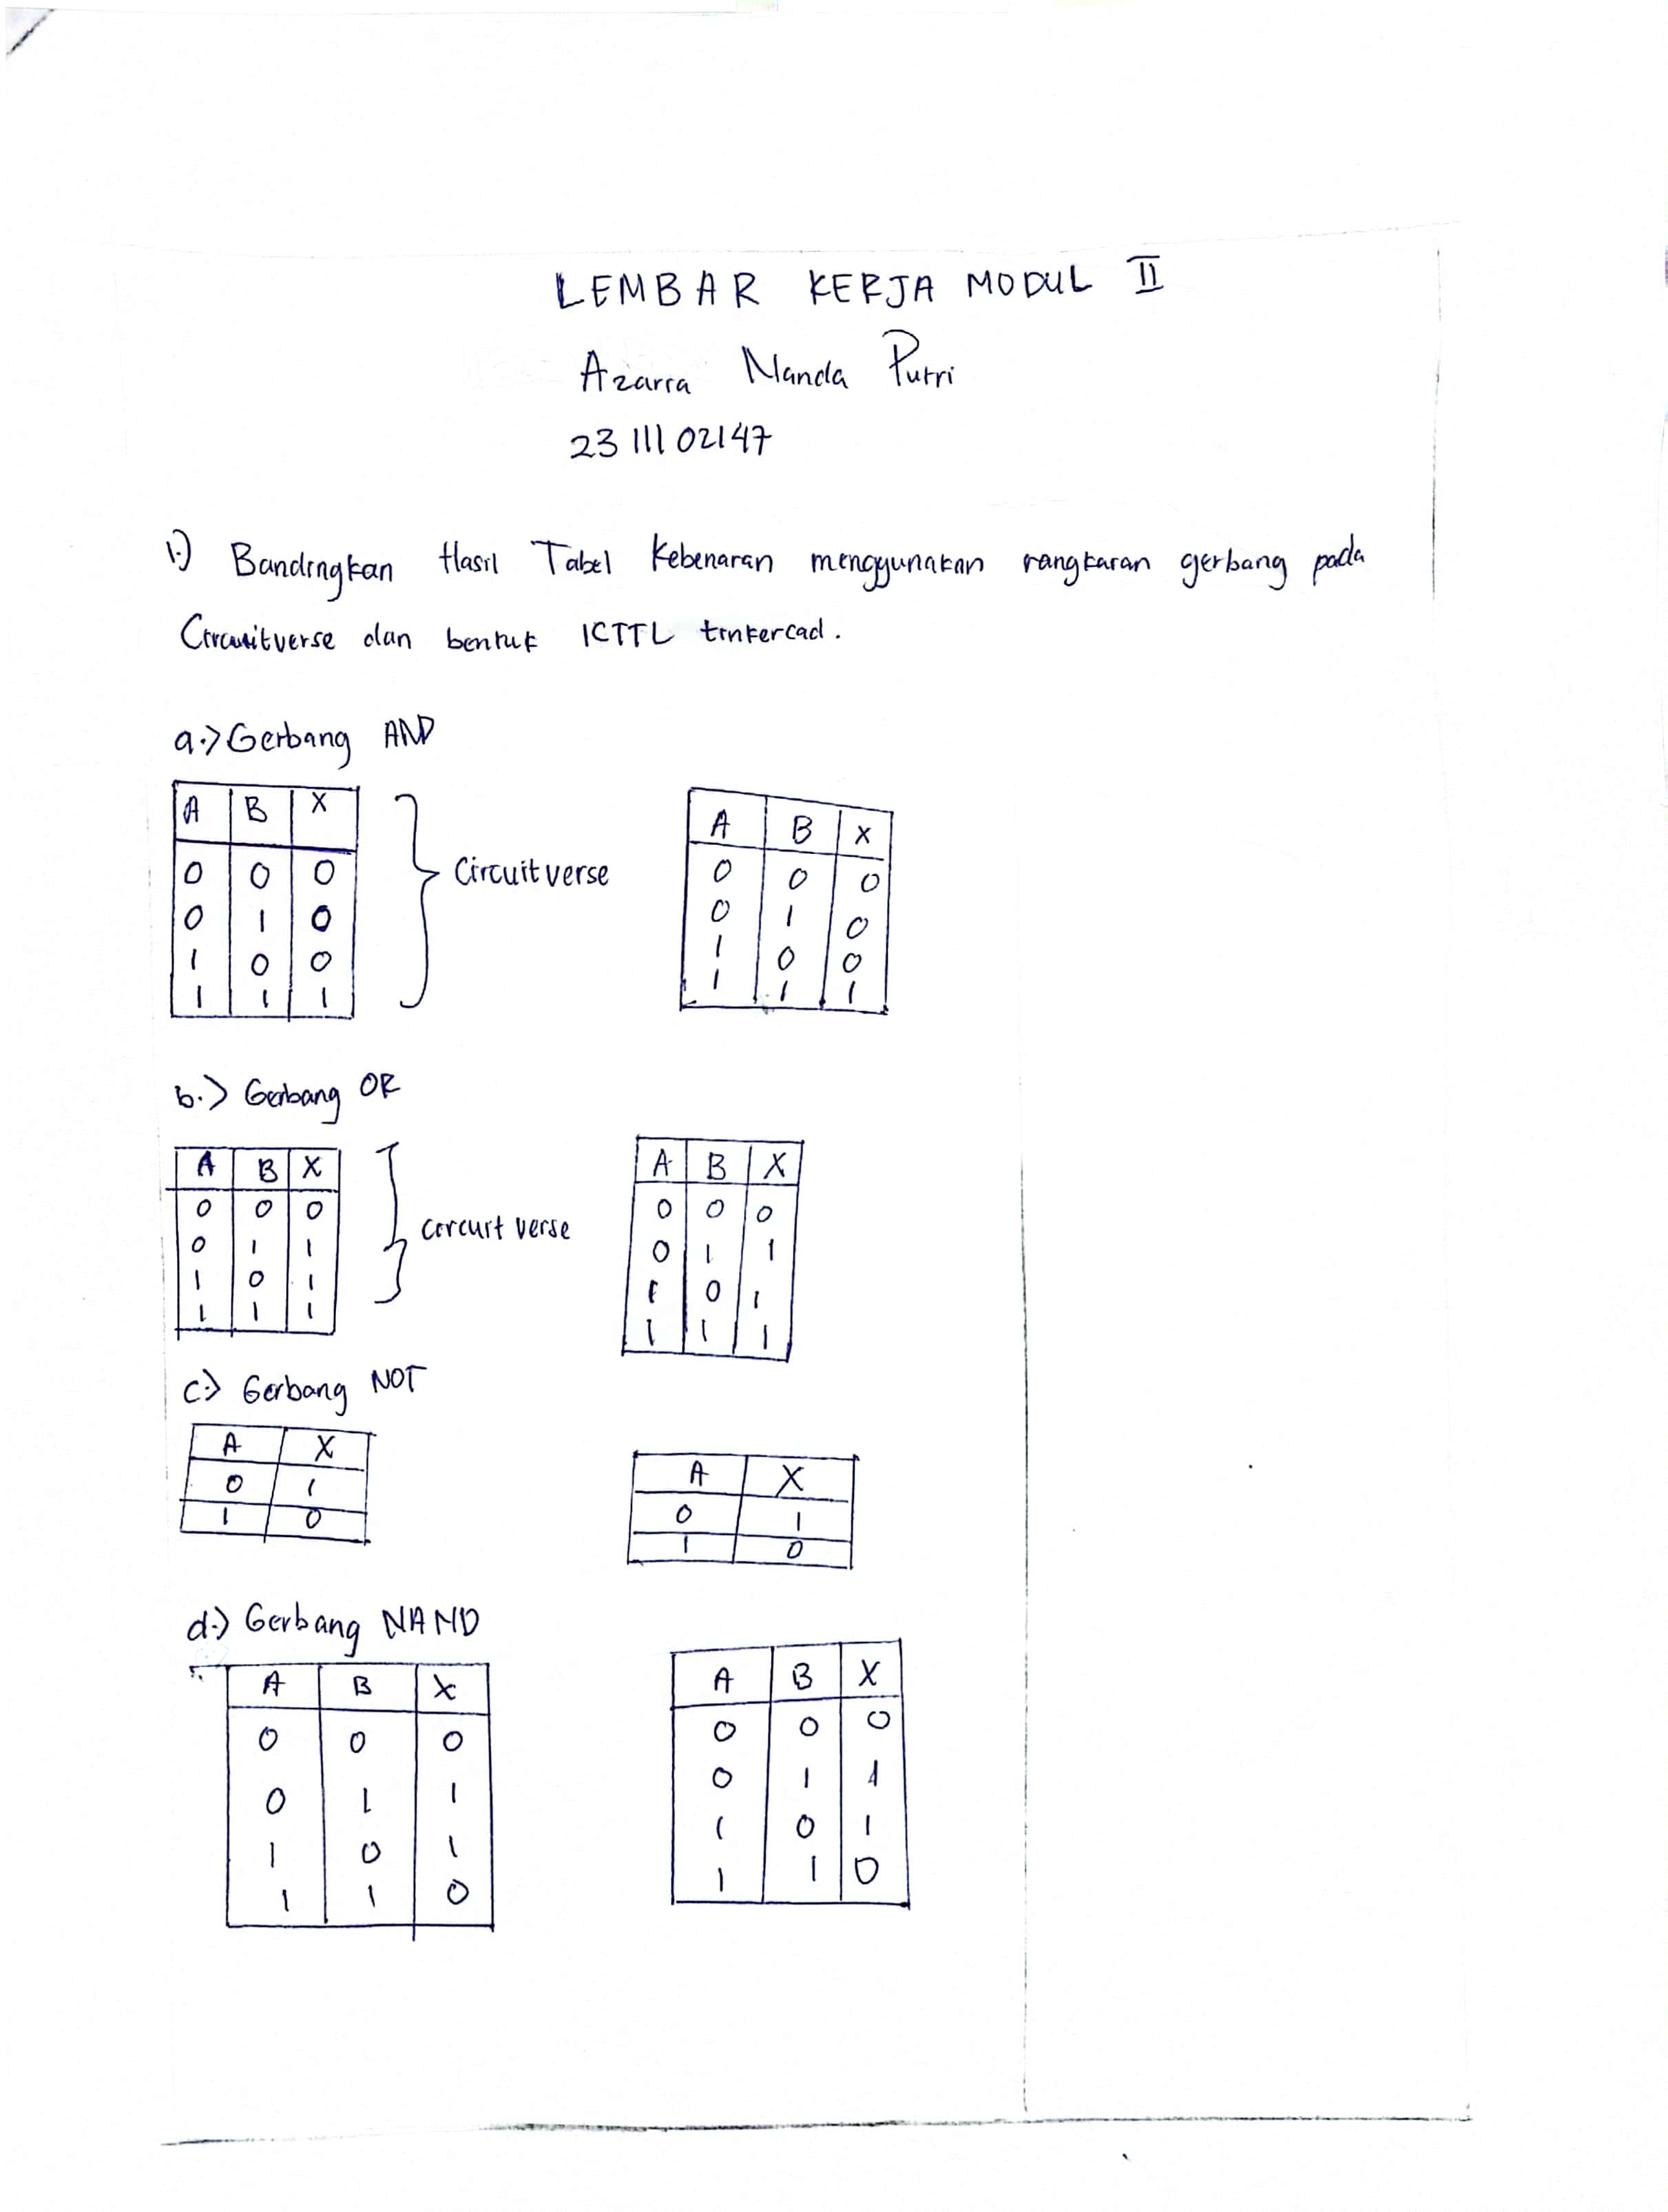 LEMBAR KERJA MODUL II
Azarra Nanda Putri
2311102147
1.) Bandingkan Hasil Tabel Kebenaran menggunakan rangkaian gerbang pada
Circuitverse dan bentuk ICTTL tinkercad.
a.) Gerbang AND
A B X
0 0 0
0 1 0
1 0 0
1 1 1
Circuitverse
A B X
0 0 0
0 1 0
1 0 0
1 1 1
b.) Gerbang OR
A B X
0 0 0
0 1 1
1 0 1
1 1 1
circuit verse
A B X
0 0 0
0 1 1
1 0 1
1 1 1
c.) Gerbang NOT
A X
0 1
1 0
A X
0 1
1 0
d.) Gerbang NAND
A B X
0 0 0
0 1 1
1 0 1
1 1 0
A B X
0 0 0
0 1 1
1 0 1
1 1 0